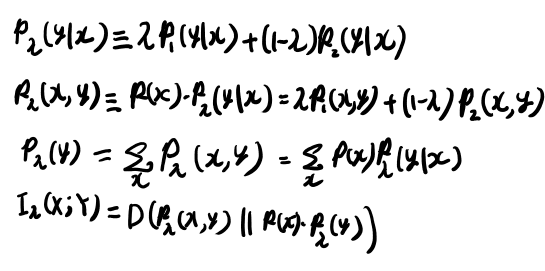 P_λ(y|x) ≡ λP₁(y|x) + (1-λ)P₂(y|x)
P_λ(x,y) ≡ P(x)·P_λ(y|x) = λP₁(x,y) + (1-λ)P₂(x,y)
P_λ(y) = Σ_x P_λ(x,y) = Σ_x P(x)P_λ(y|x)
I_λ(X;Y) = D(P_λ(x,y) || P(x)·P_λ(y))